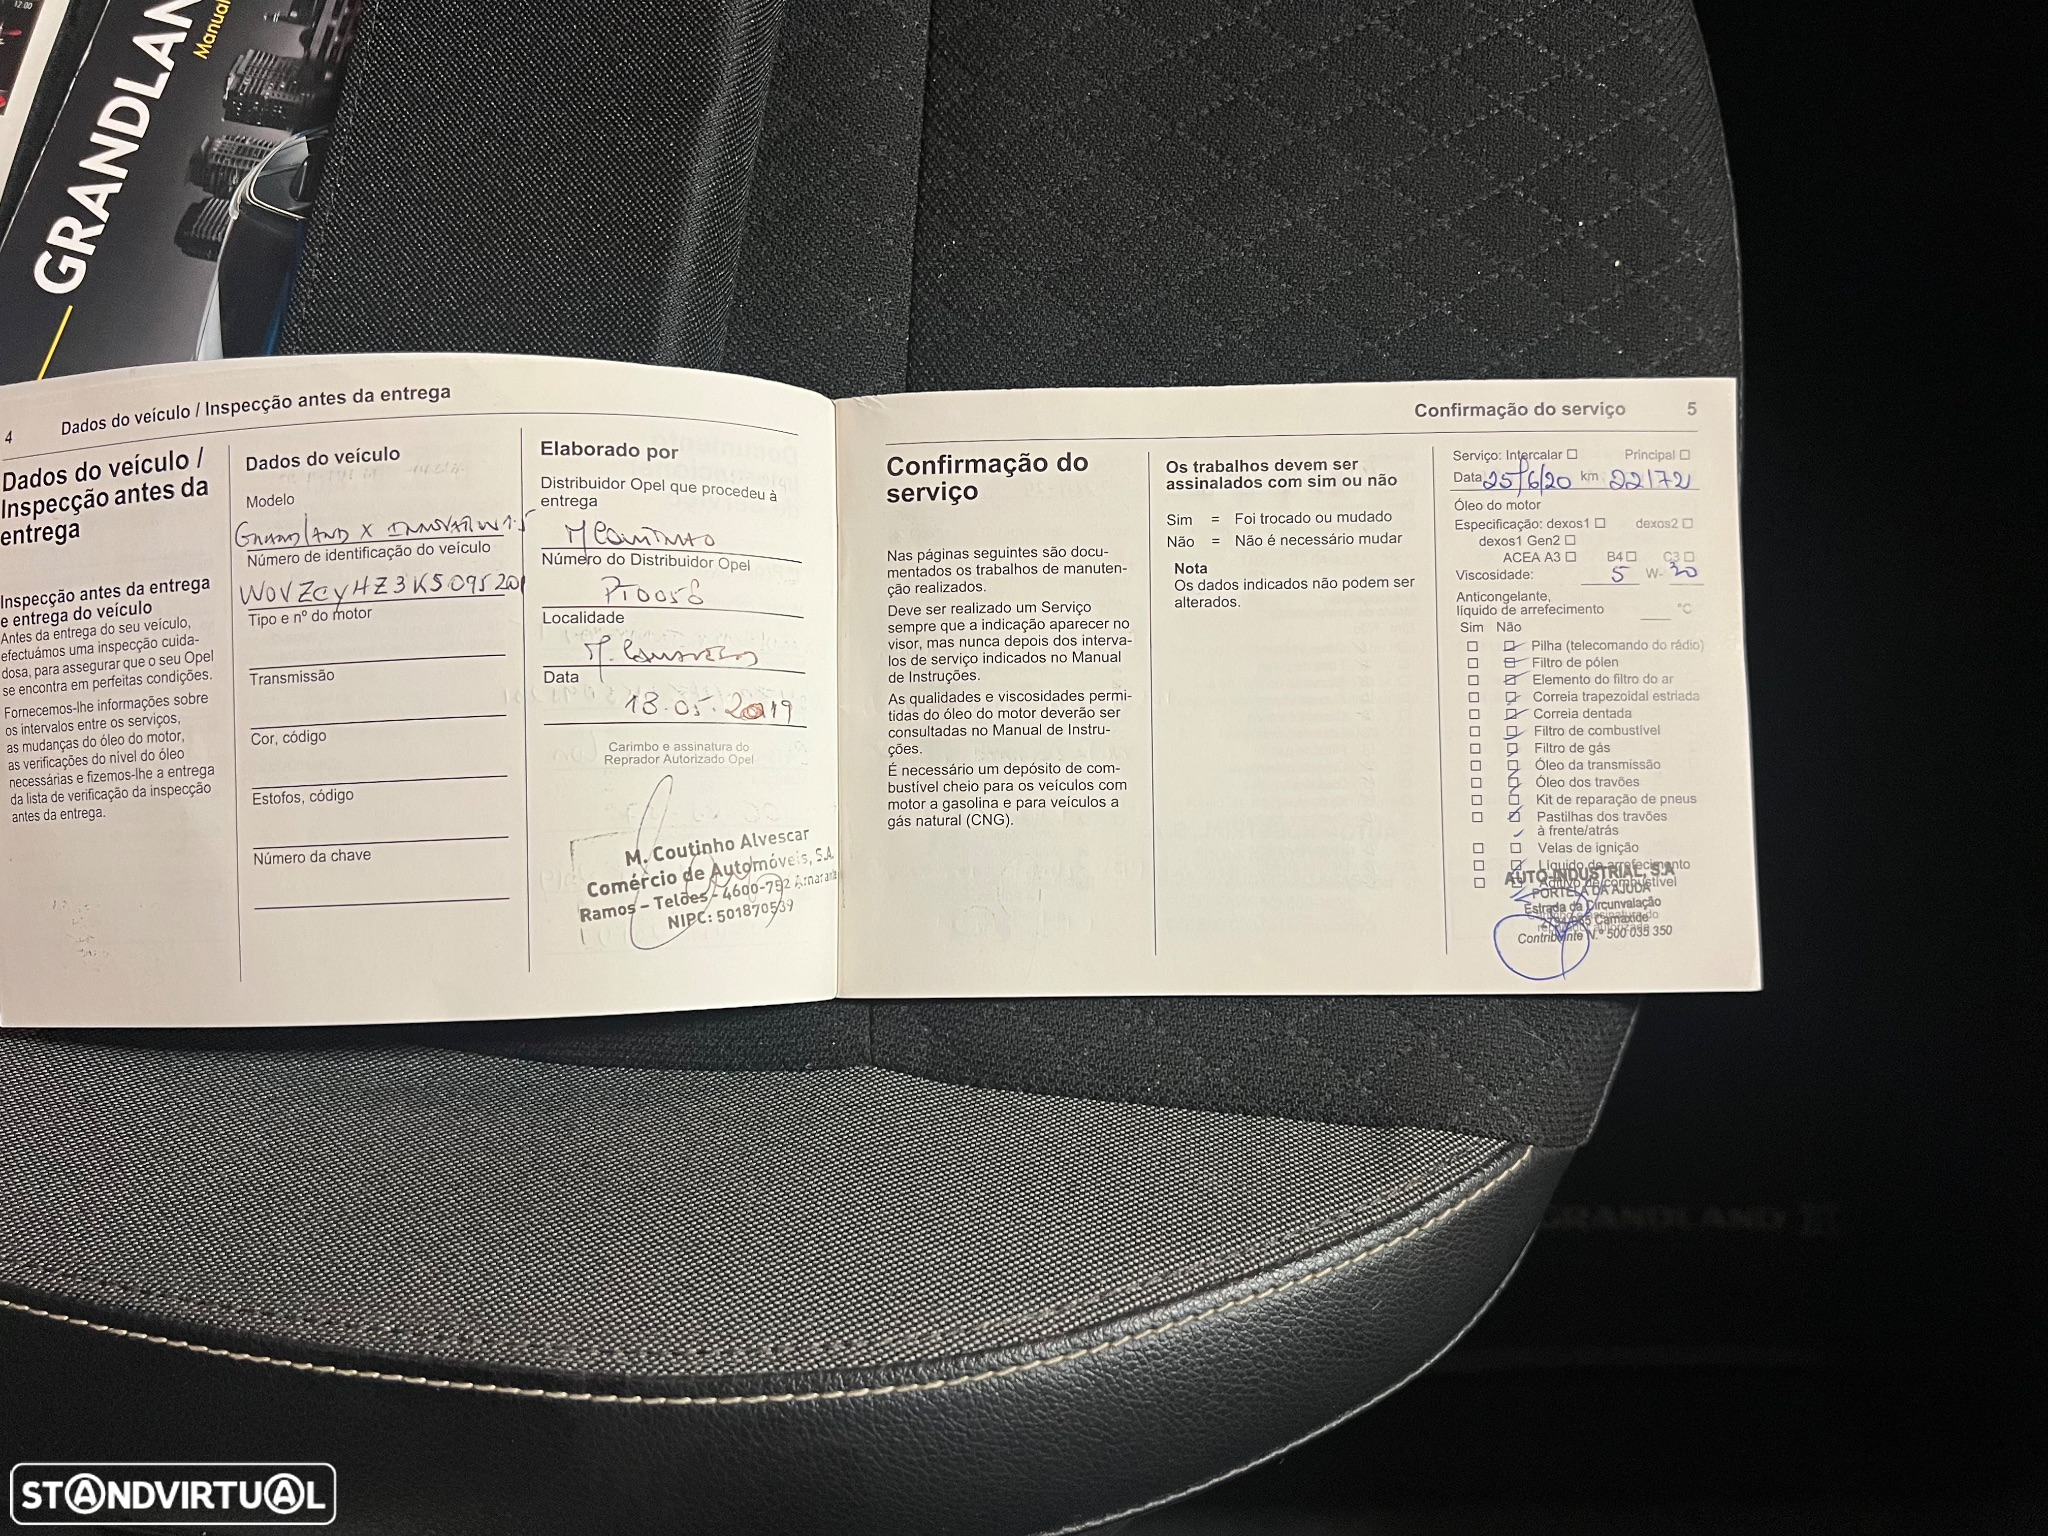 GRANDLAN
Manual
4 Dados do veículo / Inspecção antes da entrega
Dados do veículo /
Inspecção antes da
entrega
Inspecção antes da entrega
e entrega do veículo
Antes da entrega do seu veículo,
efectuámos uma inspecção cuida-
dosa, para assegurar que o seu Opel
se encontra em perfeitas condições.
Fornecemos-lhe informações sobre
os intervalos entre os serviços,
as mudanças do óleo do motor,
as verificações do nível do óleo
necessárias e fizemos-lhe a entrega
da lista de verificação da inspecção
antes da entrega.
Dados do veículo
Modelo
GRANDLAND X INNOVATION 1.5
Número de identificação do veículo
W0VZCYHZ3K5095201
Tipo e nº do motor
Transmissão
Cor, código
Estofos, código
Número da chave
Elaborado por
Distribuidor Opel que procedeu à
entrega
M COUTINHO
Número do Distribuidor Opel
PT0058
Localidade
Data
18.05.2019
Carimbo e assinatura do
Reprador Autorizado Opel
M. Coutinho Alvescar
Comércio de Automóveis, S.A.
Ramos – Telões - 4600-752 Amarante
NIPC: 501870539
Confirmação do serviço 5
Confirmação do
serviço
Nas páginas seguintes são docu-
mentados os trabalhos de manuten-
ção realizados.
Deve ser realizado um Serviço
sempre que a indicação aparecer no
visor, mas nunca depois dos interva-
los de serviço indicados no Manual
de Instruções.
As qualidades e viscosidades permi-
tidas do óleo do motor deverão ser
consultadas no Manual de Instru-
ções.
É necessário um depósito de com-
bustível cheio para os veículos com
motor a gasolina e para veículos a
gás natural (CNG).
Os trabalhos devem ser
assinalados com sim ou não
Sim = Foi trocado ou mudado
Não = Não é necessário mudar
Nota
Os dados indicados não podem ser
alterados.
Serviço: Intercalar ☐ Principal ☐
Data 25/6/20 km 22172
Óleo do motor
Especificação: dexos1 ☐ dexos2 ☐
dexos1 Gen2 ☐
ACEA A3 ☐ B4 ☐ C3 ☐
Viscosidade: 5 W- 30
Anticongelante,
líquido de arrefecimento °C
Sim Não
Pilha (telecomando do rádio)
Filtro de pólen
Elemento do filtro do ar
Correia trapezoidal estriada
Correia dentada
Filtro de combustível
Filtro de gás
Óleo da transmissão
Óleo dos travões
Kit de reparação de pneus
Pastilhas dos travões
à frente/atrás
Velas de ignição
Líquido de arrefecimento
Aditivo de combustível
AUTO-INDUSTRIAL, S.A
PORTELA DA AJUDA
Estrada da Circunvalação
Carnaxide
Contribuinte N.º 500 035 350
GRANDLAND X
STANDVIRTUAL